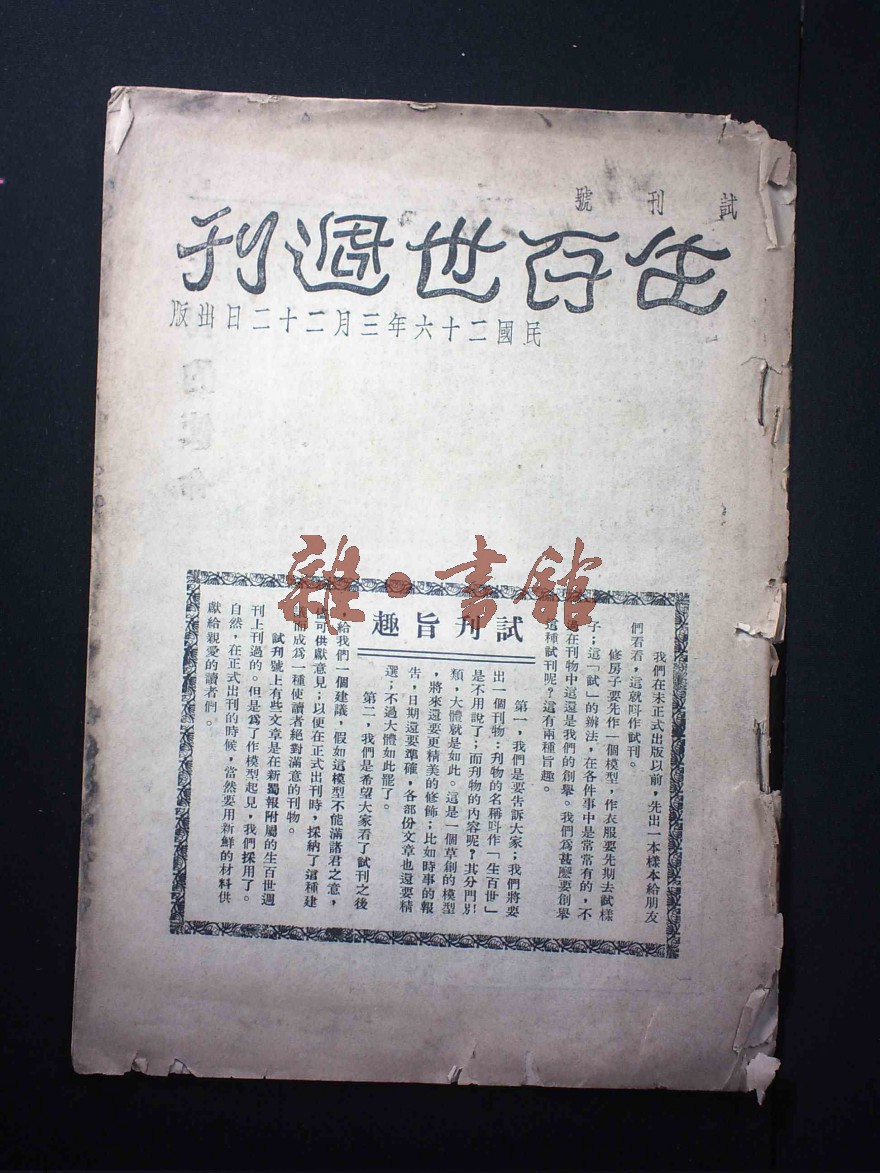 試刊號
生百世週刊
民國二十六年三月二十二日出版
雜·書館
試刊旨趣
我們在未正式出版以前，先出一本樣本給朋友
們看看，這就叫作試刊。
修房子要先作一個模型，作衣服要先期去試樣
子；這「試」的辦法，在各件事中是常常有的，不
過在刊物中這還是我們的創舉。我們爲甚麼要創舉
這種試刊呢？這有兩種旨趣。
第一，我們是要告訴大家；我們將要
出一個刊物：刋物的名稱叫作「生百世」
是不用說了；而刋物的內容呢？其分門別
類，大體就是如此。這是一個草創的模型
，將來還要更精美的修飾；比如時事的報
告，日期還要準確，各部份文章也還要精
選；不過大體如此罷了。
第二，我們是希望大家看了試刊之後
，給我們一個建議，假如這模型不能滿諸君之意，
可供獻意見；以便在正式出刊時，採納了這種建
而成爲一種使讀者絕對滿意的刊物。
試刋號上有些文章是在新蜀報附屬的生百世週
刊上刊過的。但是爲了作模型起見，我們採用了。
自然，在正式出刊的時候，當然要用新鮮的材料供
獻給親愛的讀者們。